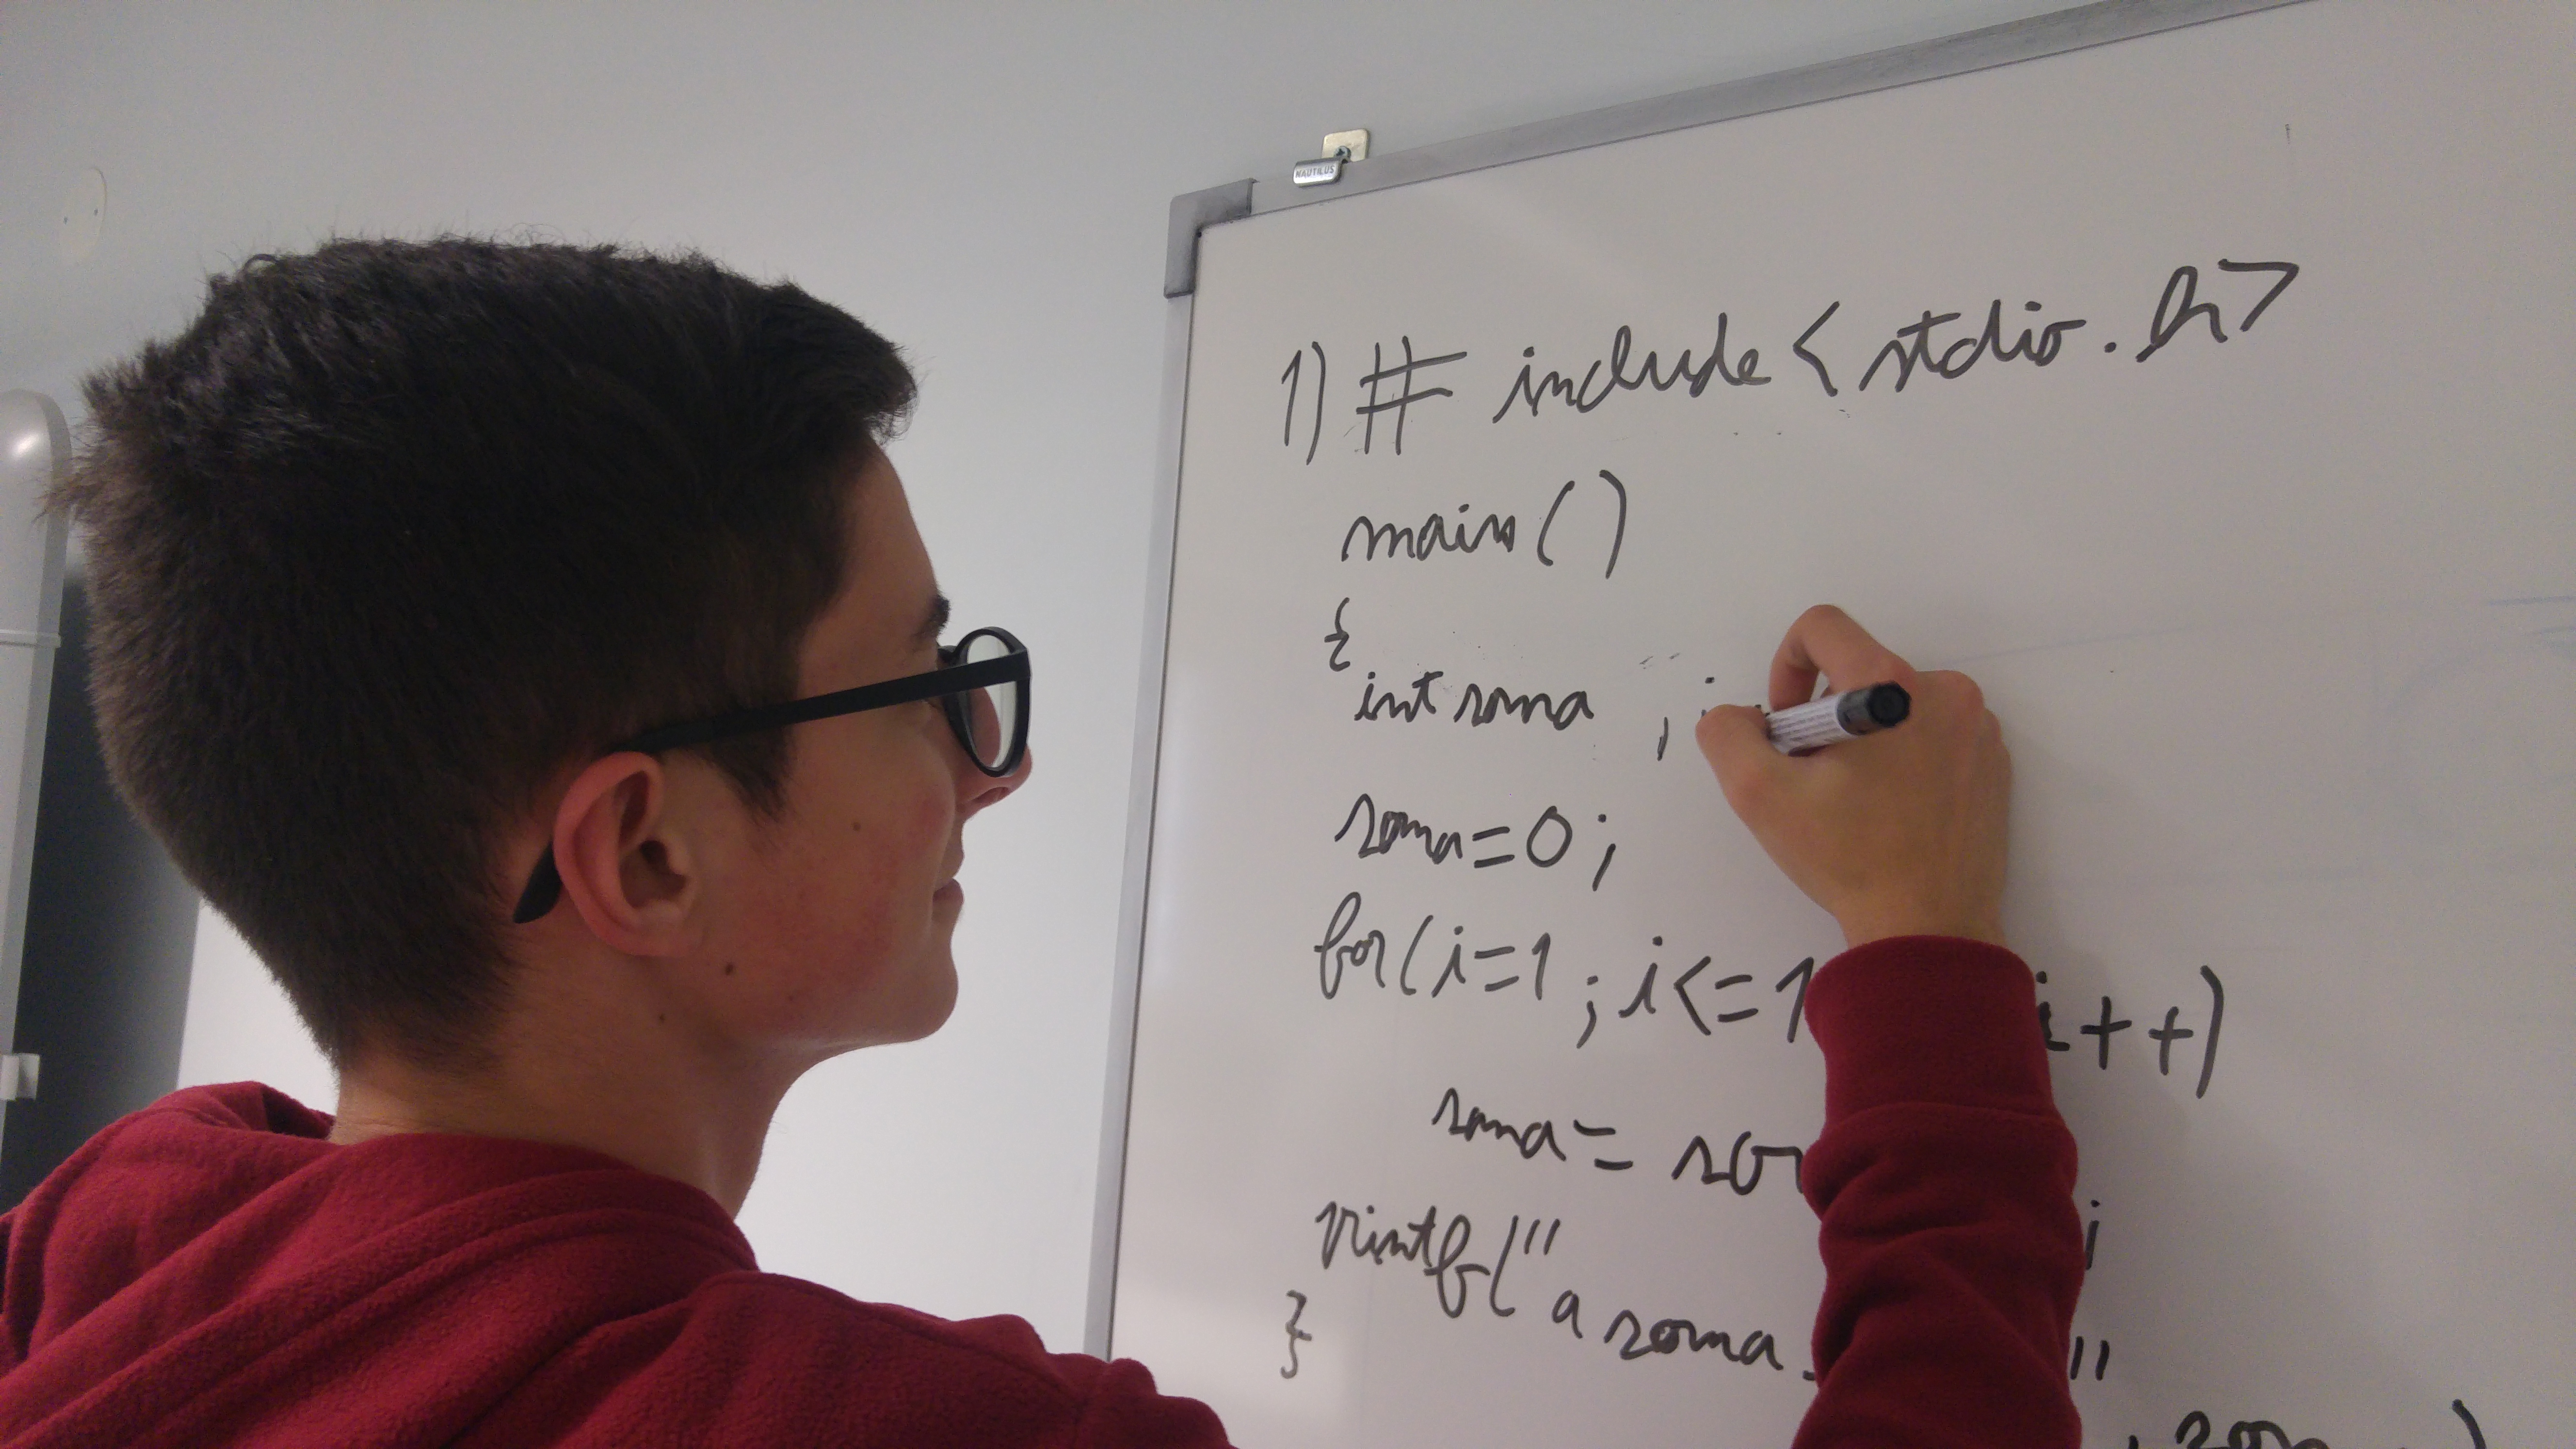 NAUTILUS
1) # include <stdio.h>
main()
{
int soma , i
soma=0;
for(i=1 ; i<=1 i++)
soma=
printf("a soma "
}
)